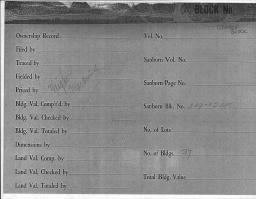 BLOCK No.
Ownership Record Vol. No.
Filed by
Traced by Sanborn Vol. No.
Fielded by
Priced by Sanborn Page No.
Bldg. Val. Comp't'd. by Sanborn Blk. No.
Bldg. Val. Checked by
Bldg. Val. Totaled by No. of Lots
Dimensions by
Land Val. Comp. by No. of Bldgs. 37
Land Val. Checked by
Land Val. Totaled by Total Bldg. Value